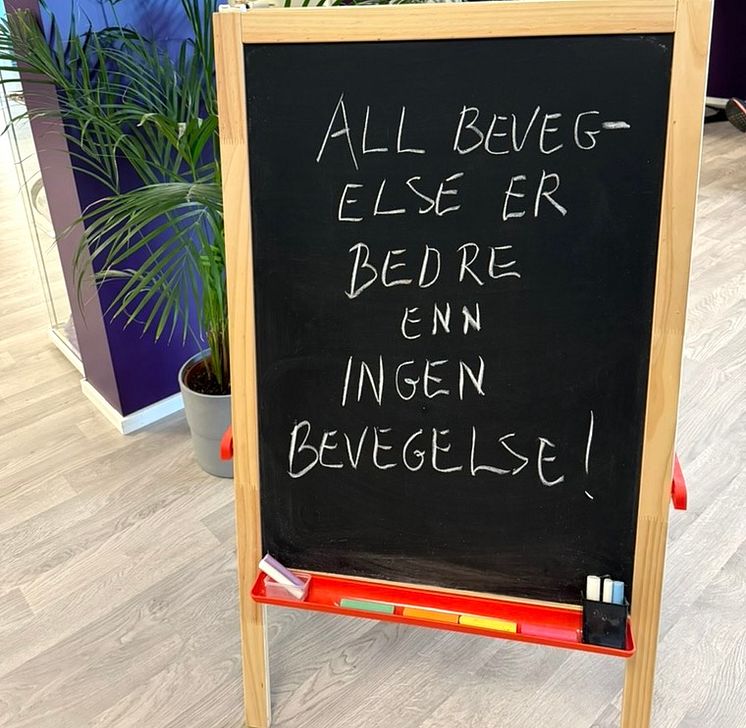 ALL BEVEG-
ELSE ER
BEDRE
ENN
INGEN
BEVEGELSE!